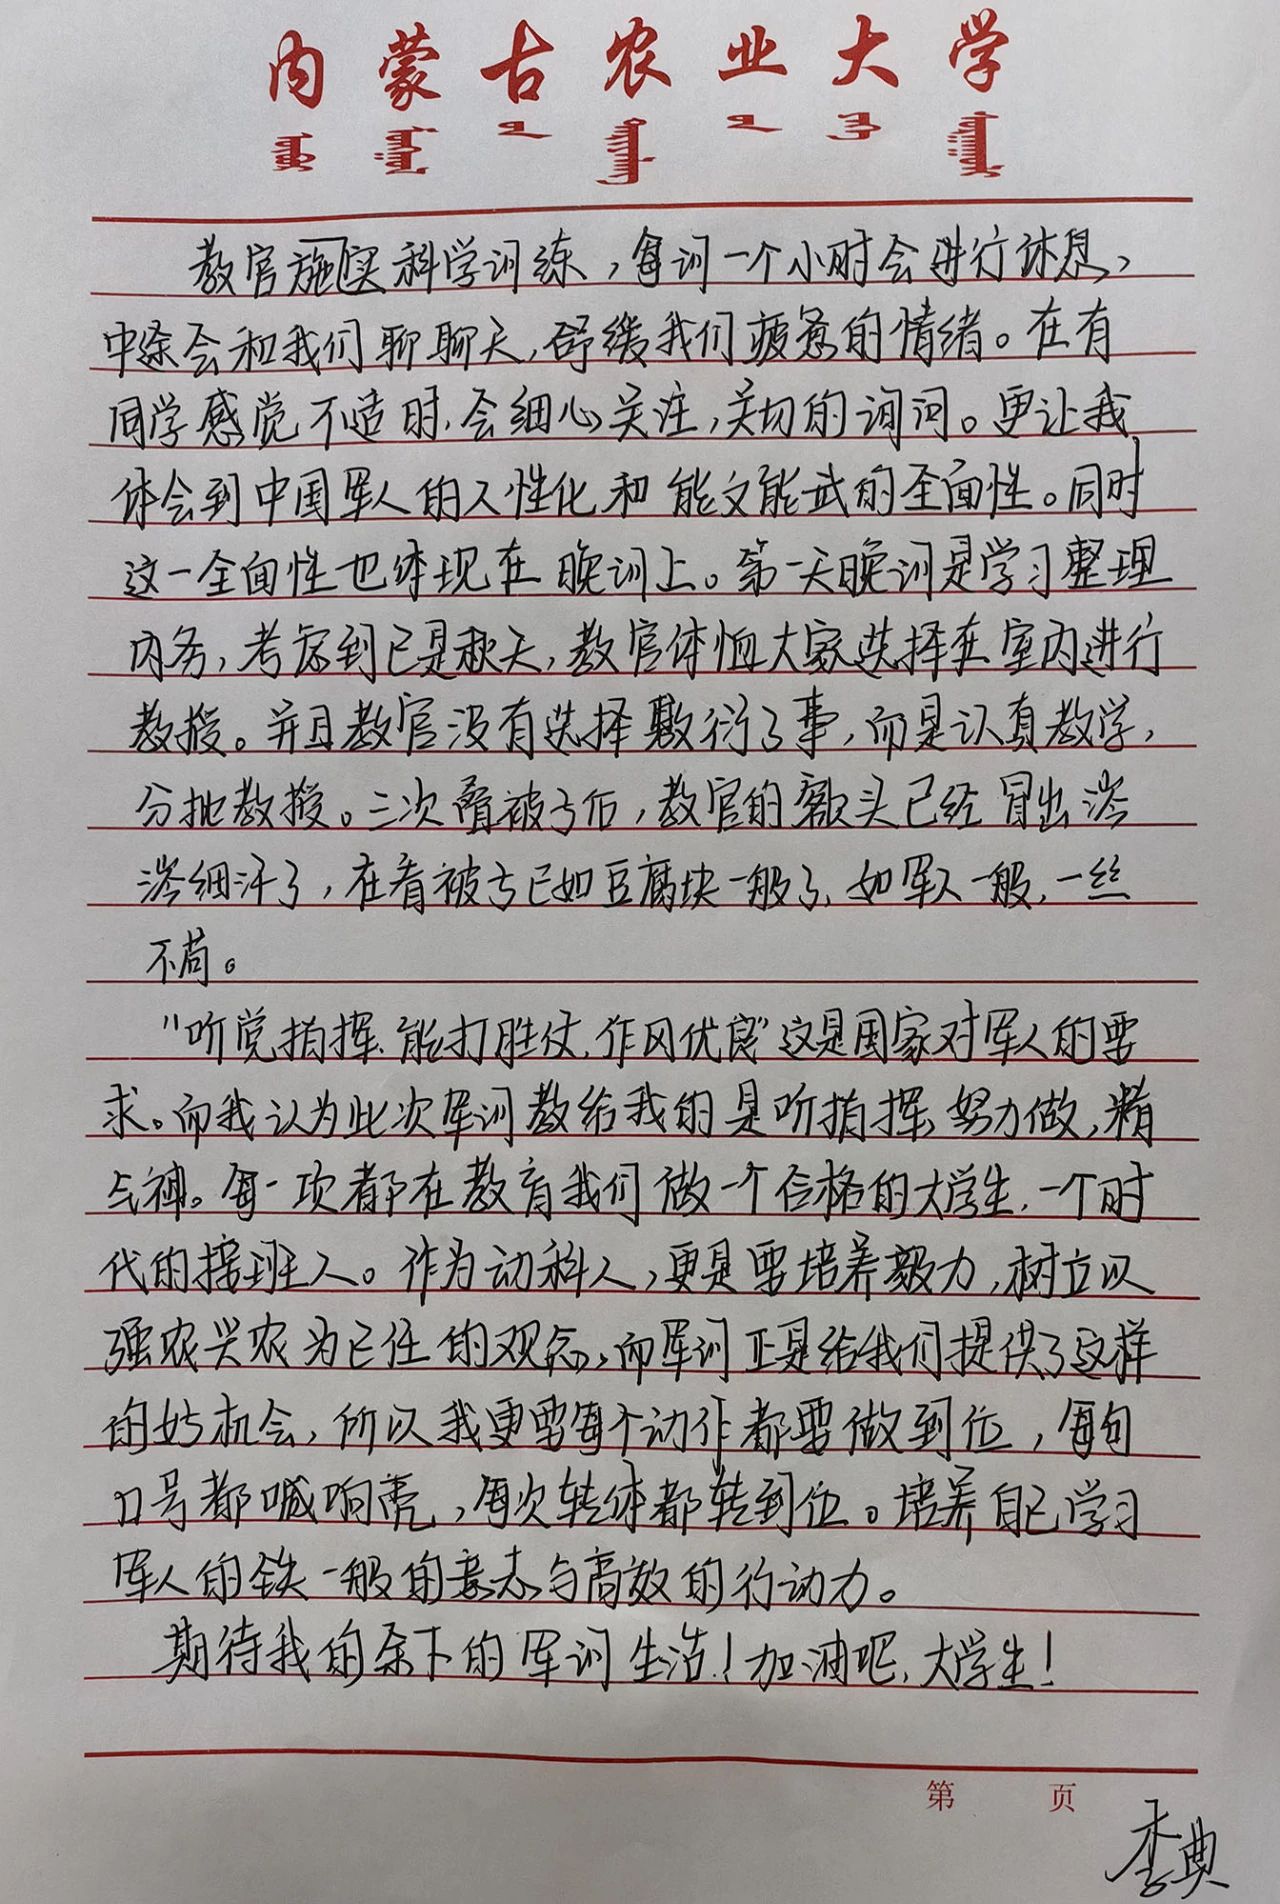 内蒙古农业大学
教官施实科学训练，每训一个小时会进行休息，
中途会和我们聊聊天，舒缓我们疲惫的情绪。在有
同学感觉不适时，会细心关注，关切的询问。更让我
体会到中国军人的人性化和能文能武的全面性。同时
这一全面性也体现在晚训上。第一天晚训是学习整理
内务，考虑到已是秋天，教官体恤大家选择在室内进行
教授。并且教官没有选择敷衍了事，而是认真教学，
分批教授。三次叠被子后，教官的额头已经冒出涔
涔细汗了，在看被子已如豆腐块一般了，如军人一般，一丝
不苟。
“听党指挥、能打胜仗、作风优良”这是国家对军人的要
求。而我认为此次军训教给我的是听指挥，努力做，精
气神。每一项都在教育我们做一个合格的大学生，一个时
代的接班人。作为动科人，更是要培养毅力，树立以
强农兴农为己任的观念，而军训正是给我们提供了这样
的好机会，所以我更要每个动作都要做到位，每句
口号都喊响亮，每次转体都转到位。培养自己学习
军人的铁一般的意志与高效的行动力。
期待我的余下的军训生活！加油吧，大学生！
第 页
李典